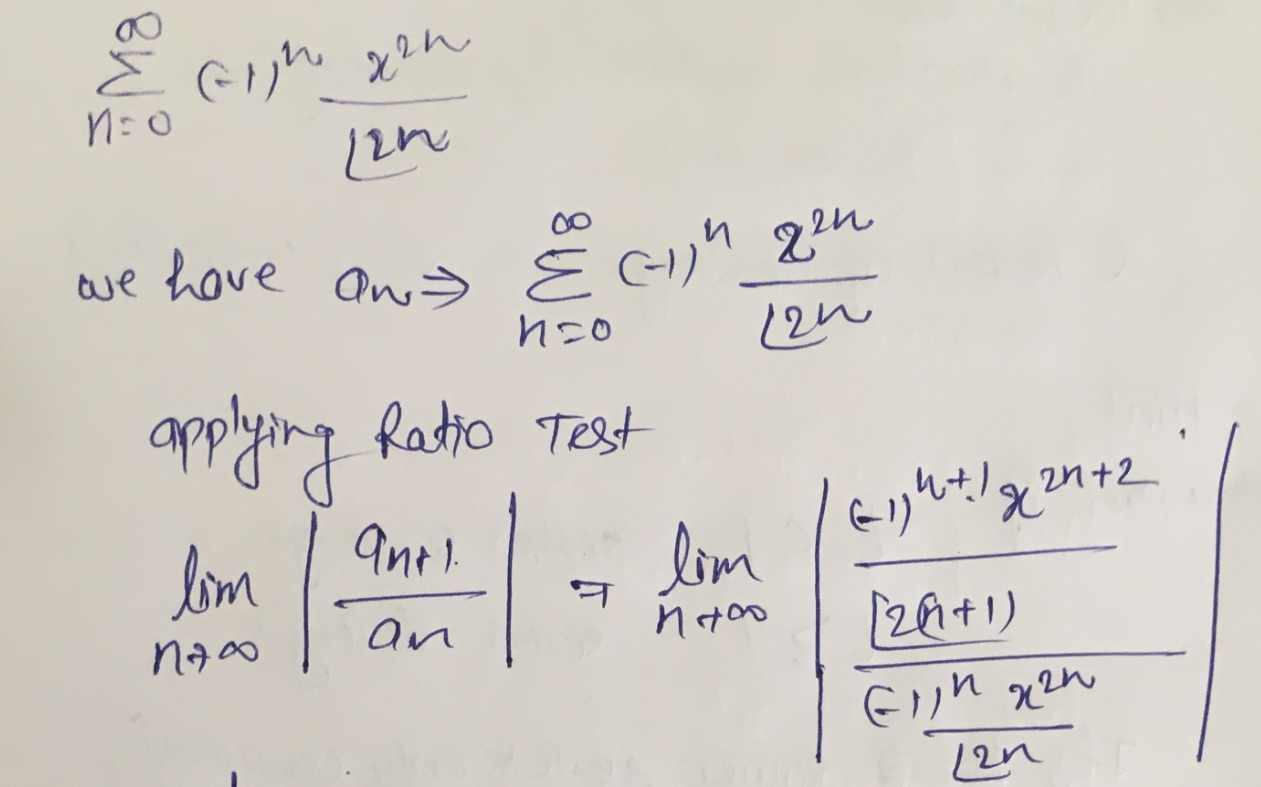 ∞
Σ (-1)^n x^{2n} / ⌊2n
n=0
we have an ⇒ ∞Σn=0 (-1)^n x^{2n} / ⌊2n
applying Ratio Test
lim n→∞ | an+1 / an | = lim n→∞ | ((-1)^{n+1} x^{2n+2} / ⌊2(n+1)) / ((-1)^n x^{2n} / ⌊2n) |